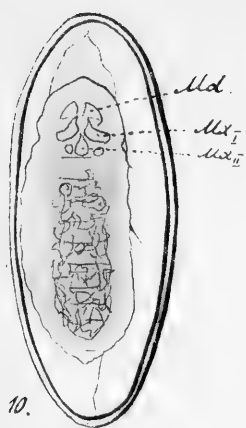 Md.
Mx I
Mx II
10.